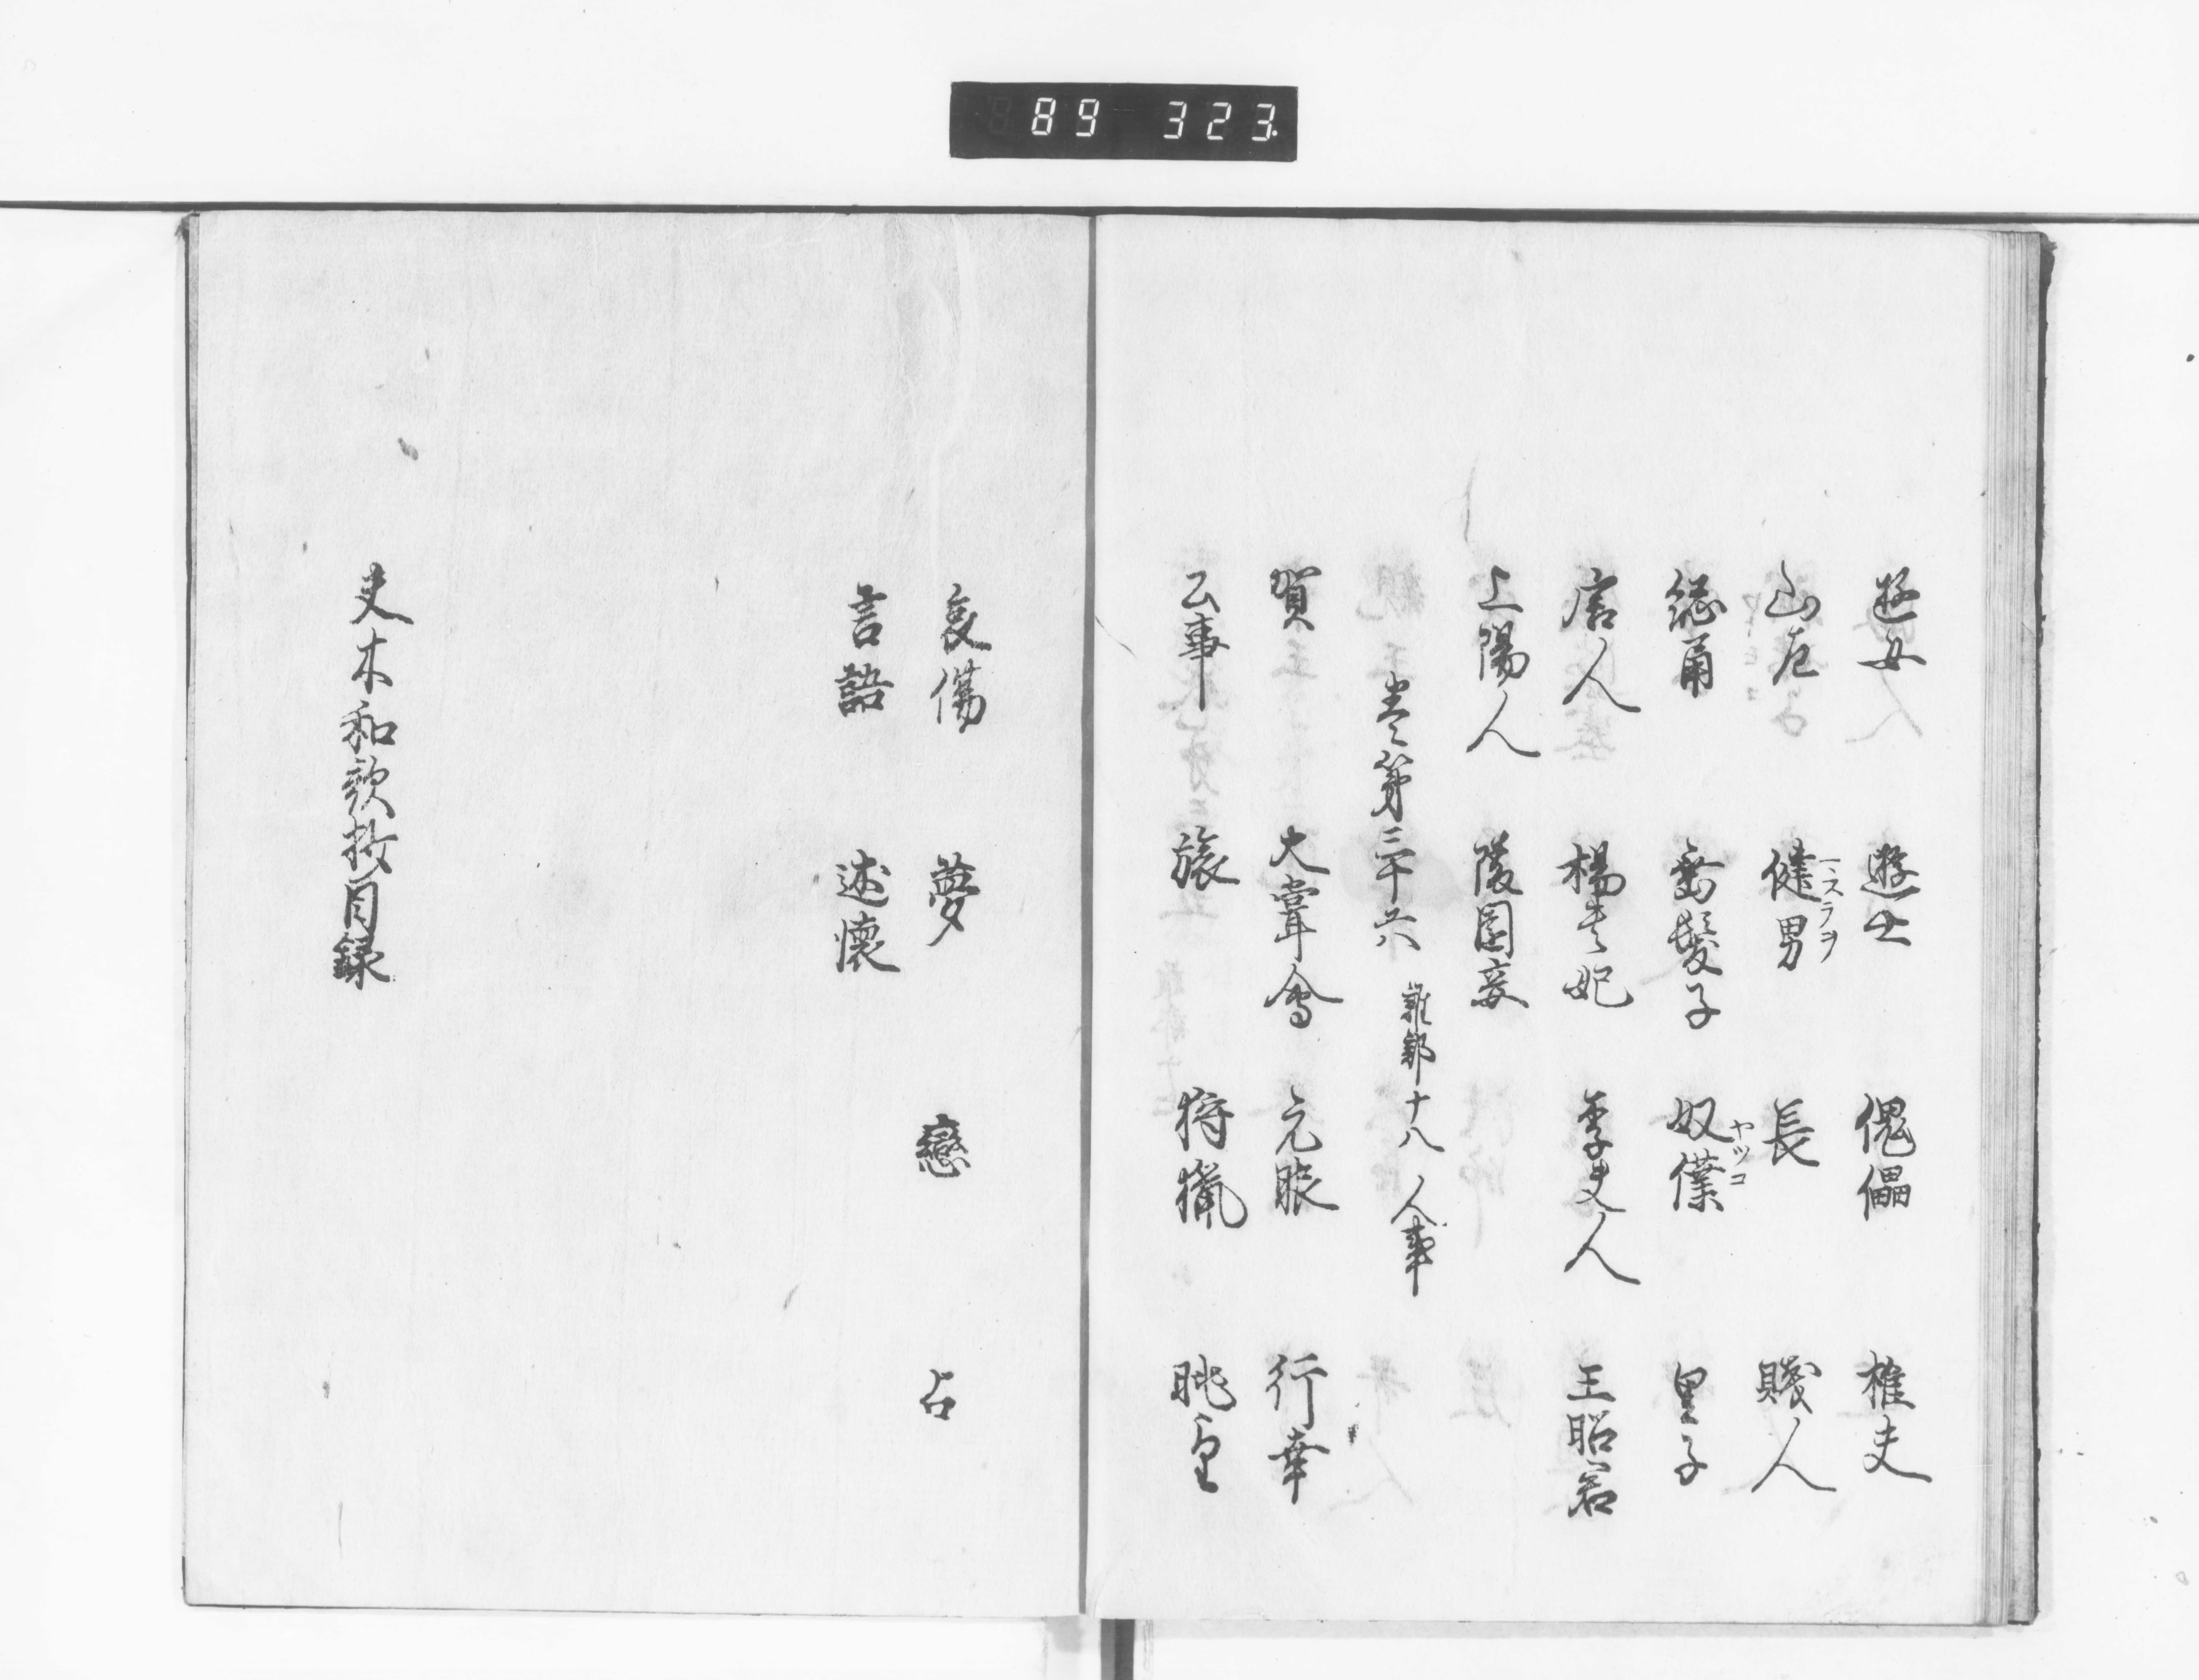 89 323.
遊女 遊士 傀儡 樵夫
山老 健男 長 賤人
総角 垂髪子 奴僕 ヤツコ 里子
唐人 楊貴妃 李夫人 王昭君
上陽人 陵園妾
巻第三十六 雑部十八 人事
賀 大嘗会 元服 行幸
公事 旅 狩猟 眺望
哀傷 夢 戀 占
言語 述懐
夫木和歌抄目録